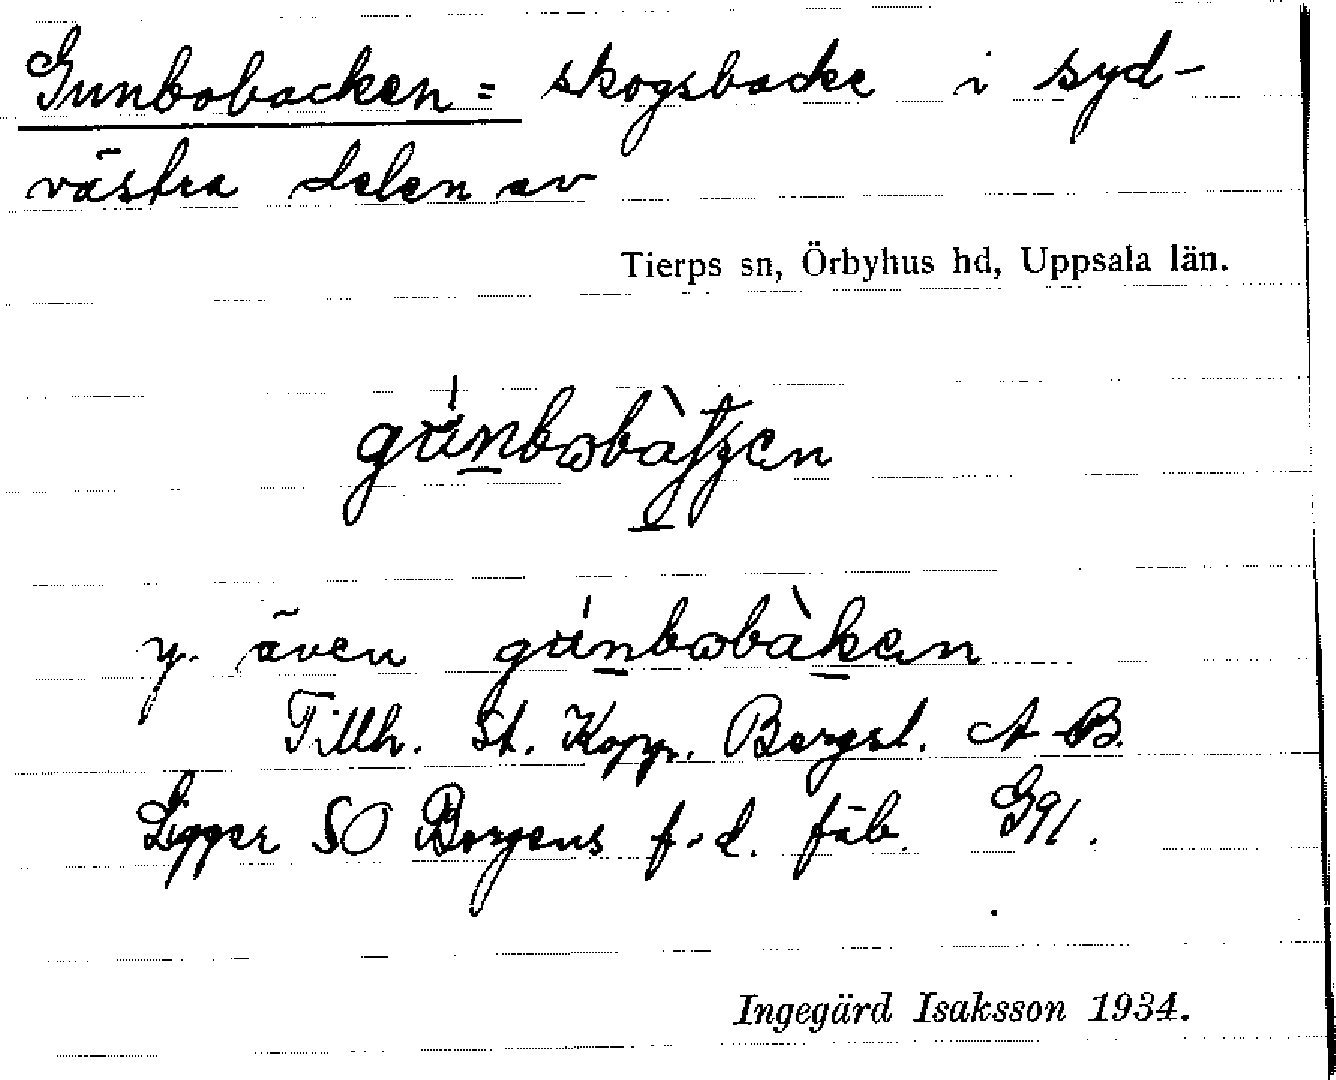 Gunbobacken = skogsbacke i syd-
västra delen av
Tierps sn, Örbyhus hd, Uppsala län.
y. även
Tillh. St. Kopp. Bergsl. A-B.
Ligger SO Bergens f.d. fäb. G91.
Ingegärd Isaksson 1934.